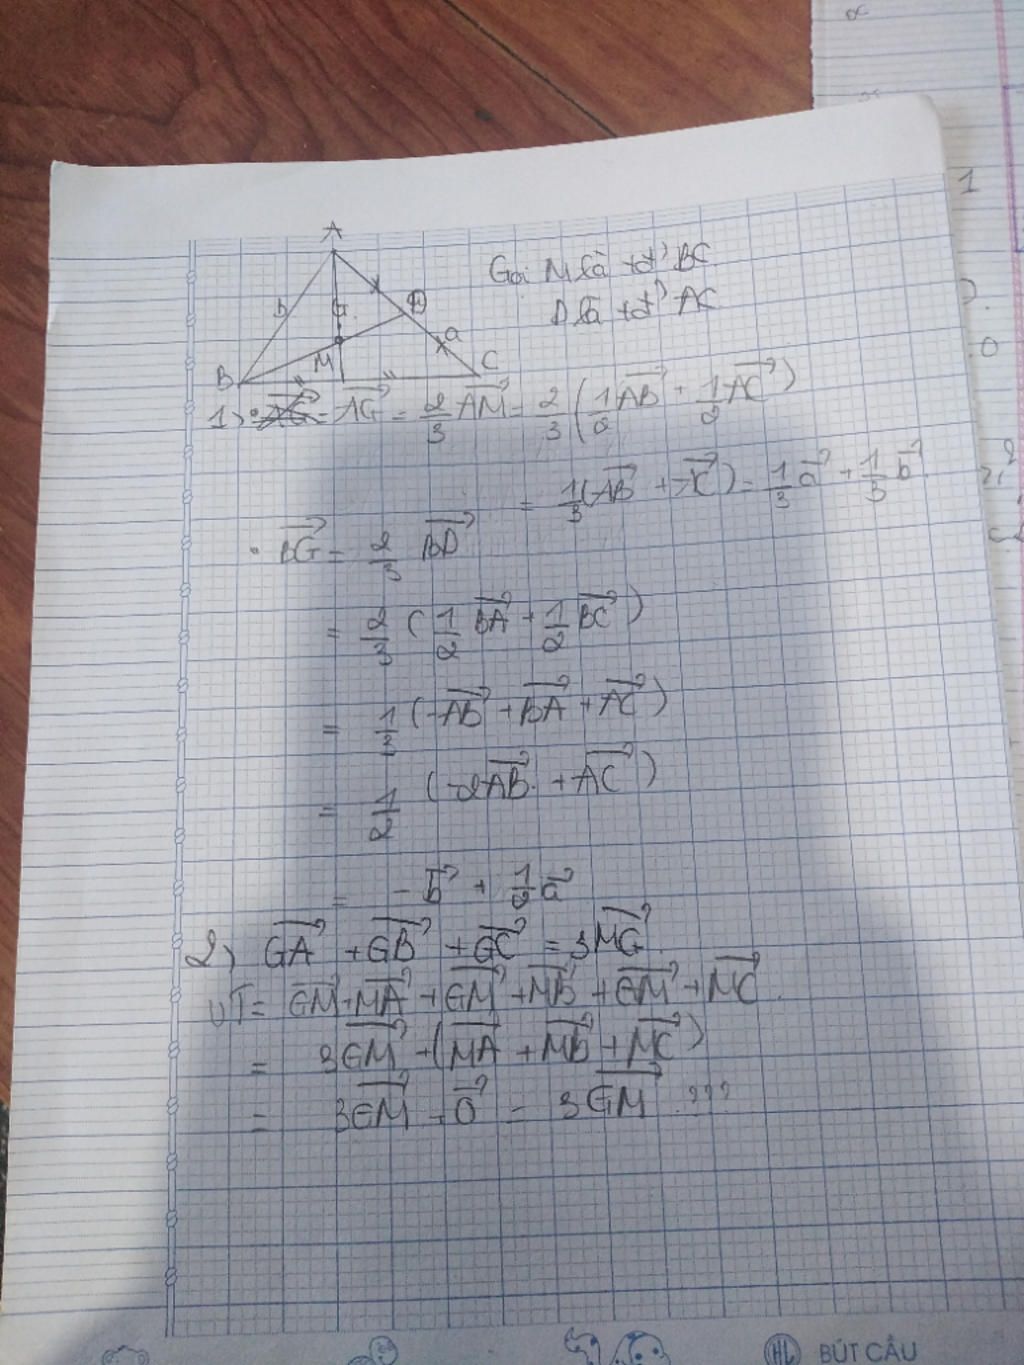 A
Gọi M là tđ' BC
D là tđ' AC
b
G
D
a
B
M
C
1) • AG = AG = 2/3 AM = 2/3 (1/2 AB + 1/2 AC)
= 1/3 (AB + AC) = 1/3 a + 1/3 b
• BG = 2/3 BD
= 2/3 (1/2 BA + 1/2 BC)
= 1/3 (-AB + BA + AC)
= 1/2 (-2AB + AC)
= -b + 1/2 a
2) GA + GB + GC = 3MG
VT = GM + MA + GM + MB + GM + MC
= 3GM + (MA + MB + MC)
= 3GM + 0 = 3GM ???
1
0
HL BÚT CÂU